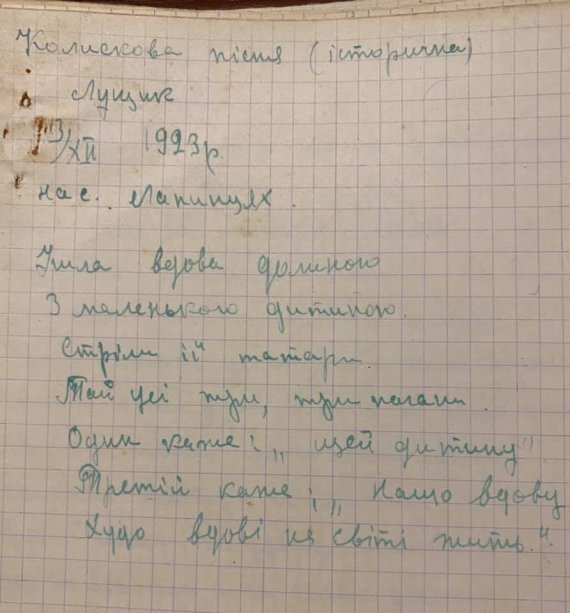 Колискова пісня (історична)
Лущик
13/XII 1923 р.
на с. Лапинцях.
Ішла вдова долиною
З маленькою дитиною.
Стріли її татари
Тай усі три, три погани.
Один каже: „
дитину"
Третій каже: „Нащо вдову
Худо вдові на світі жить."